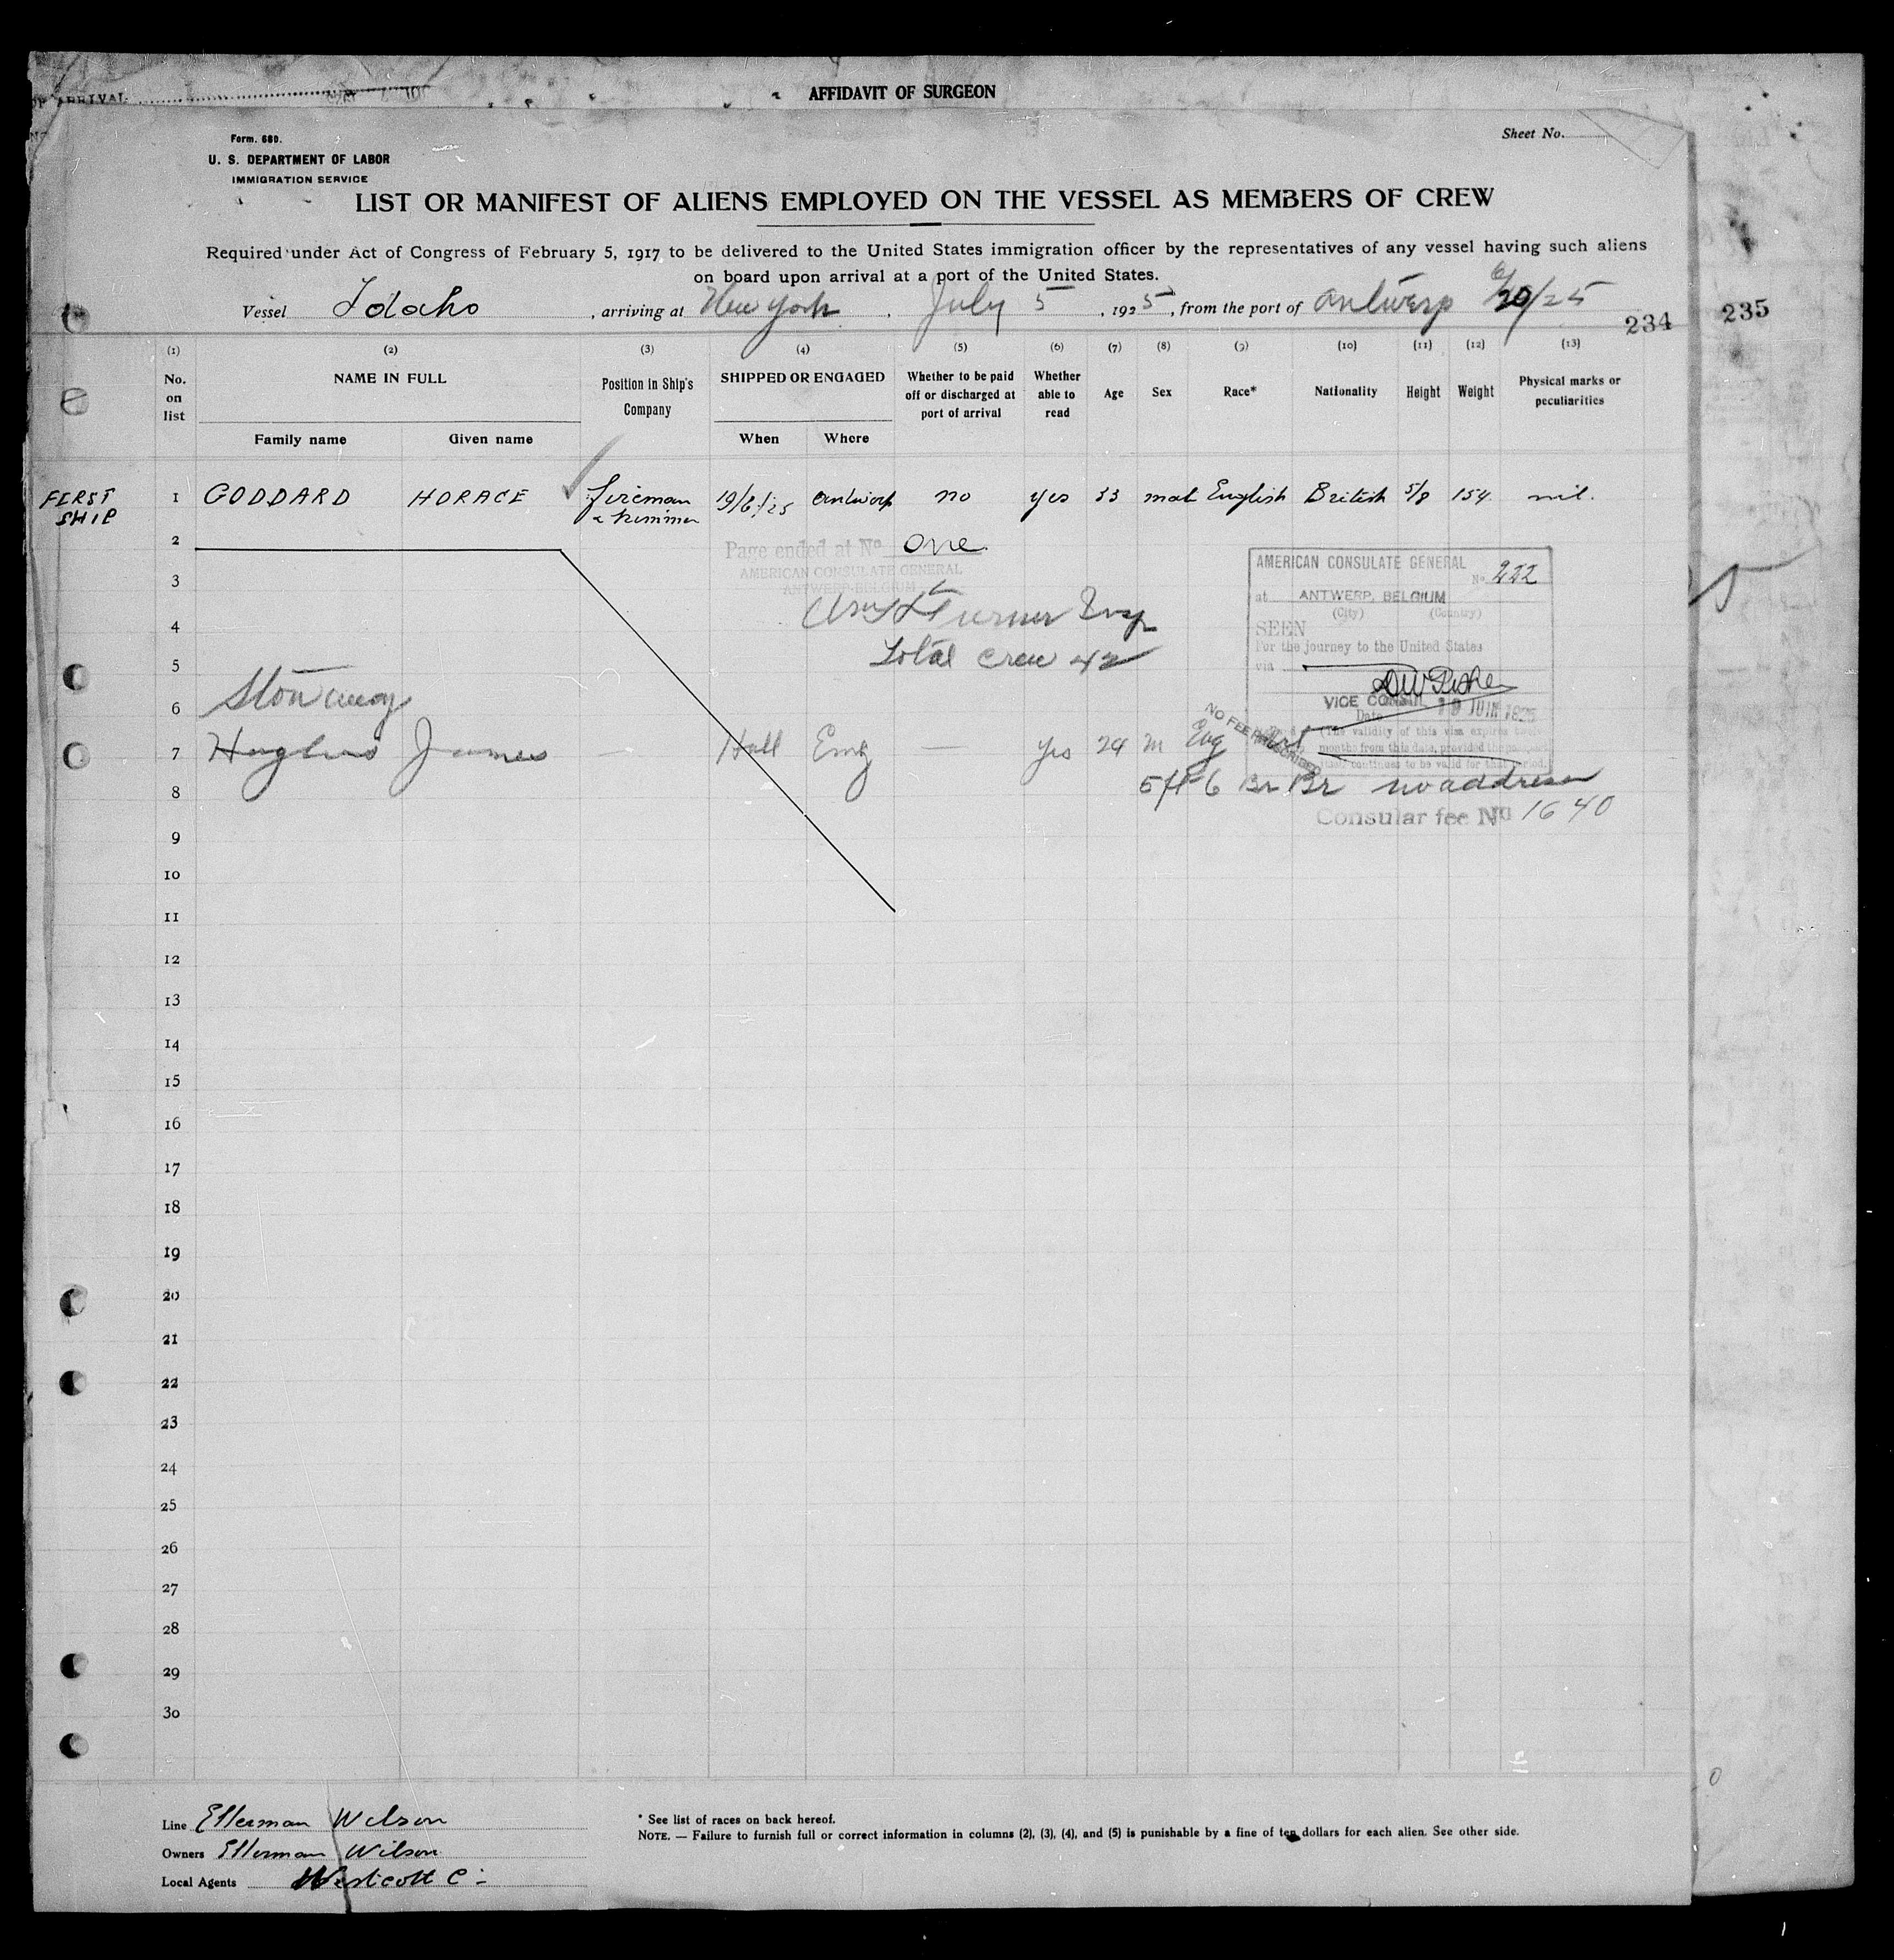 OF ARRIVAL
AFFIDAVIT OF SURGEON
Form. 680.
U. S. DEPARTMENT OF LABOR
IMMIGRATION SERVICE
Sheet No.
LIST OR MANIFEST OF ALIENS EMPLOYED ON THE VESSEL AS MEMBERS OF CREW
Required under Act of Congress of February 5, 1917 to be delivered to the United States immigration officer by the representatives of any vessel having such aliens
on board upon arrival at a port of the United States.
Vessel Idaho, arriving at New York, July 5, 1925, from the port of Antwerp 6/20/25
234 235
(1) (2) (3) (4) (5) (6) (7) (8) (9) (10) (11) (12) (13)
No. on list NAME IN FULL Position in Ship's Company SHIPPED OR ENGAGED Whether to be paid off or discharged at port of arrival Whether able to read Age Sex Race* Nationality Height Weight Physical marks or peculiarities
Family name Given name When Where
FIRST SHIP 1 GODDARD HORACE fireman & trimmer 19/6/25 Antwerp no yes 33 mal English British 5/8 154 nil.
2
Page ended at No One
AMERICAN CONSULATE GENERAL
ANTWERP-BELGIUM
AMERICAN CONSULATE GENERAL
No. 222
at ANTWERP, BELGIUM
(City) (Country)
SEEN
For the journey to the United States
via
VICE CONSUL
Date 19 JUIN 1925
(The validity of this visa expires twelve
months from this date, provided the passport
continues to be valid for that period.
NO FEE PRESCRIBED
3
4 Turner
5 Total crew 42
6 Stowaway
7 Hughes James — Hull Eng — yes 24 m Eng
8 5ft-6 Br Br no address
Consular fee No 1640
9
10
11
12
13
14
15
16
17
18
19
20
21
22
23
24
25
26
27
28
29
30
Line Ellerman Wilson
Owners Ellerman Wilson
Local Agents Westcott C
* See list of races on back hereof.
NOTE. — Failure to furnish full or correct information in columns (2), (3), (4), and (5) is punishable by a fine of ten dollars for each alien. See other side.